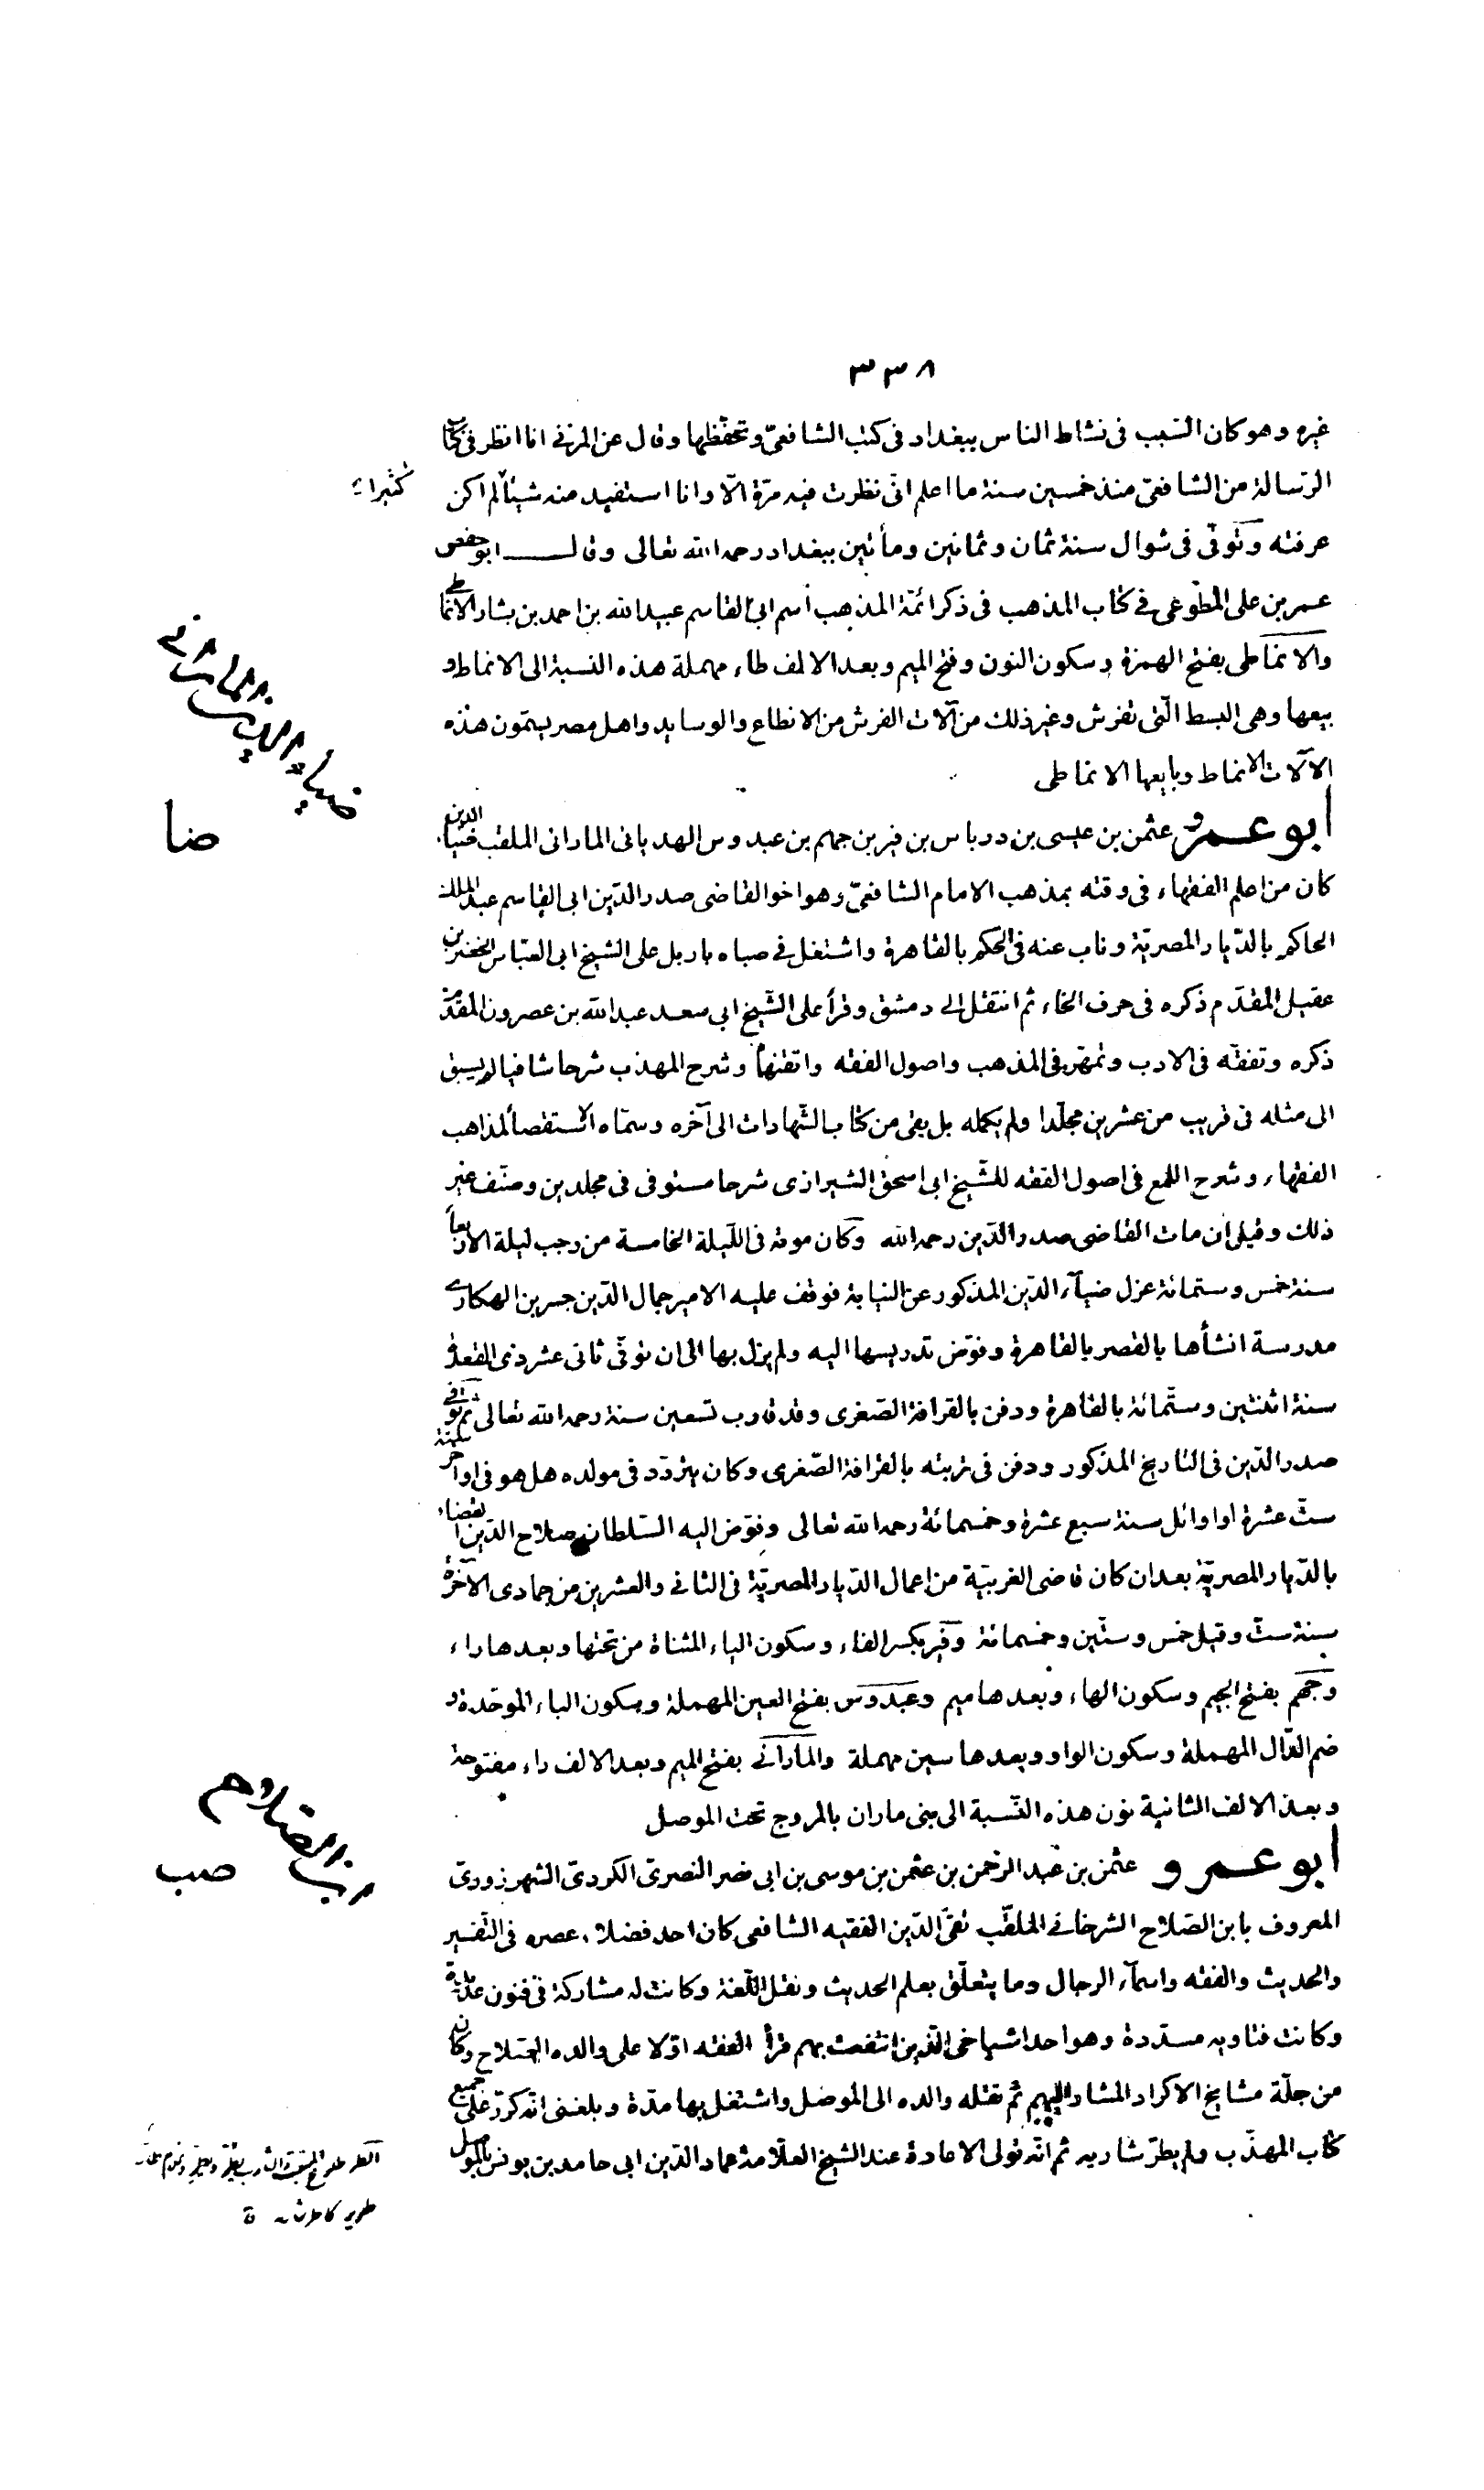 ٣٣٨
غيره وهو كان السبب فى نشاط الناس ببغداد فى كتب الشافعىّ وتحفّظها وقال عن المزنى انا انظر فى كتاب
الرسالة من الشافعى منذ خمسين سنة ما اعلم انى نظرت فيه مرّة الّا وانا استفيد منه شيئاً لم اكن
كثيرا
عرفته وتوفّى فى شوال سنة ثمان وثمانين ومأتين ببغداد رحمه الله تعالى وقال ابو حفص
عمر بن على المطوعى فى كتاب المذهب فى ذكر ائمّة المذهب اسم ابى القاسم عبيد الله بن احمد بن بشار الانماطى
والانماطى بفتح الهمزة وسكون النون وفتح الميم وبعد الالف طاء مهملة هذه النسبة الى الانماط و
بيعها وهى البسط الّتى تفرش وغير ذلك من آلات الفرش من الانطاع والوسايد واهل مصر يسمّون هذه
الآلات الانماط وبايعها الانماطى
ضياء الدين المارانى
ضا
أبو عمرو عثمن بن عيسى بن درباس بن فير بن جهم بن عبدوس الهدبانى المارانى الملقب ضياء الدين
كان من اعلم الفقهاء فى وقته بمذهب الامام الشافعىّ وهو اخو القاضى صدر الدّين ابى القاسم عبد الملك
الحاكم بالدّيار المصريّة وناب عنه فى الحكم بالقاهرة واشتغل فى صباه باربل على الشيخ ابى العبّاس الخضر بن
عقيل المقدّم ذكره فى حرف الخاء ثم انتقل الى دمشق وقرأ على الشّيخ ابى سعد عبد الله بن عصرون المقدّم
ذكره وتفقّه فى الادب وتمهّر فى المذهب واصول الفقه واتقنها وشرح المهذب شرحا شافيا لم يسبق
الى مثله فى قريب من عشرين مجلّدا ولم يكمله بل بقى من كتاب الشّهادات الى آخره وسمّاه الاستقصأ لمذاهب
الفقهاء وشرح اللمع فى اصول الفقه للشّيخ ابى اسحق الشيرازى شرحا مستوفى فى مجلدين وصنّف غير
ذلك وقيل ان مات القاضى صدر الدّين رحمه الله وكان موته فى اللّيلة الخامسة من رجب ليلة الاربعأ
سنة خمس وستمائة عزل ضيآء الدّين المذكور عن النيابة فوقف عليه الامير جمال الدّين جسرين الهكارى
مدرسة انشأها بالقصر بالقاهرة وفوّض تدريسها اليه ولم يزل بها الى ان توفّى ثانى عشر ذى القعدة
سنة اثنتين وستّمائة بالقاهرة ودفن بالقرافة الصّغرى وقد قارب تسعين سنة رحمه الله تعالى ثم توفى
صدر الدّين فى التاريخ المذكور ودفن فى تربته بالقرافة الصّغرى وكان يتردّد فى مولده هل هو فى اواخر سنة
ستّ عشرة او اوائل سنة سبع عشرة وخمسمائة رحمه الله تعالى وفوّض اليه السّلطان صلاح الدّين القضاء
بالدّيار المصريّة بعد ان كان قاضى الغربيّة من اعمال الدّيار المصريّة فى الثانى والعشرين من جمادى الآخرة
سنة ستّ وقيل خمس وستّين وخمسمائة وفير بكسر الفاء وسكون الياء المثناة من تحتها وبعدها راء
وجهم بفتح الجيم وسكون الهاء وبعدها ميم وعبدوس بفتح العين المهملة وسكون الباء الموحّدة و
ضم الدّال المهملة وسكون الواو وبعدها سين مهملة والمارانى بفتح الميم وبعد الالف راء مفتوحة
وبعد الالف الثانية نون هذه النّسبة الى بنى ماران بالمروج تحت الموصل
ابن الصّلاح
صب
أبو عمرو عثمن بن عبد الرحمن بن عثمن بن موسى بن ابى نصر النصرىّ الكردىّ الشهرزورىّ
المعروف بابن الصّلاح الشرخانى الملقّب تقىّ الدّين الفقيه الشافعى كان احد فضلاء عصره فى التّفسير
والحديث والفقه واسمآء الرجال وما يتعلّق بعلم الحديث ونقل اللّغة وكانت له مشاركة فى فنون عديدة
وكانت فتاويه مسدّدة وهو احد اشياخى الّذين انتفعت بهم قرأ الفقه اوّلا على والده الصّلاح وكان
من جلّة مشايخ الاكراد المشار اليهم ثم نقله والده الى الموصل واشتغل بها مدّة وبلغنى انّه كرّر على جميع
كتاب المهذّب ولم يطرّ شاربه ثم انّه تولى الاعادة عند الشيخ العلّامة عماد الدّين ابى حامد بن يونس بالموصل